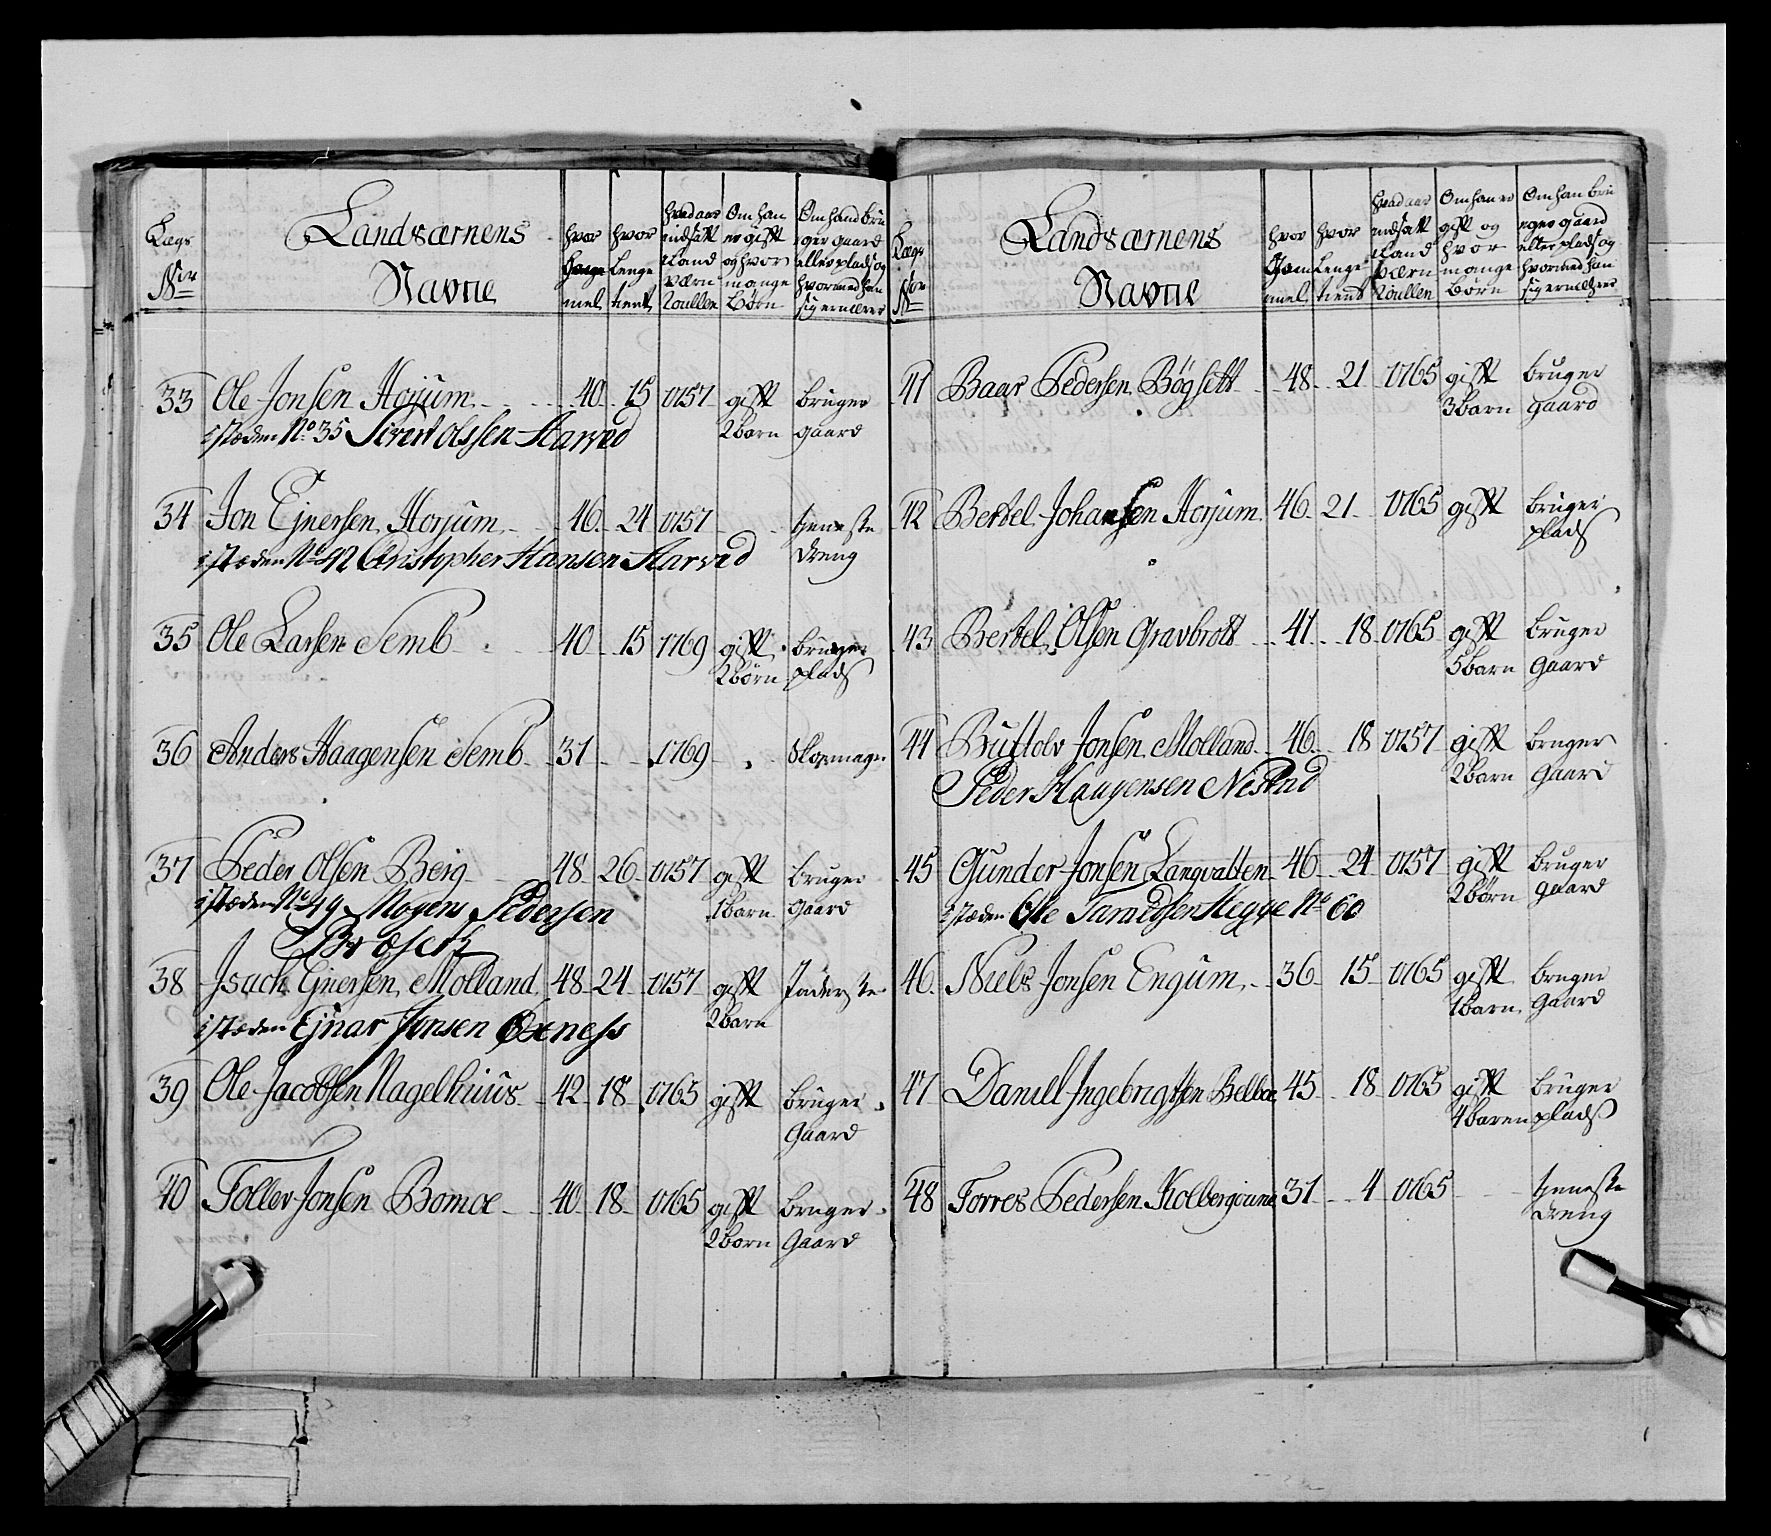 Lægs Nor
Landværnens Navne
hvor Gammel
hvor Lenge tient
hvad aar indsatt i Land Værn Roullen
Om han er gift og hvor mange Børn
Om hand bruger gaard eller plads og hvormed han sig ernærer
33 Ole Jonsen Horjum 40 15 1757 gift bruger
2 barn gaard
istæden No 35 Sivert olssen Harved
34 Jon Ejnersen Horjum 46 24 1757 tjeneste
dreng
istæden No 42 Christopher Hansen Harved
35 Ole Larsen Semb 40 15 1769 gift bruger
2 børn plads
36 Anders Haagensen Semb 31 1769 skomager
37 Peder Olsen Berg 48 26 1757 gift bruger
1 barn Gaard
istæden No 49 Mogens Pedersen
38 Isach Ejnersen Molland 48 24 1757 gift Inderste
2 barn
istæden Ejnar Jonsen Øxness
39 Ole Jacobsen Nagelhuus 42 18 1765 gift bruger
Gaard
40 Toller Jonsen Bomoe 40 18 1765 gift bruger
2 born Gaard
Lægs Nor
Landværnens Navne
hvor Gammel
hvor Lenge tient
hvad aar indsatt i Land Værn Roullen
Om han er gift og hvor mange Børn
Om han bruger gaard eller plads og hvormed han sig ernærer
41 Baar Pedersen Bøgsett 48 21 1765 gift bruger
3 barn gaard
42 Bertel Johansen Horjum 46 21 1765 gift bruger
plads
43 Bertel Olsen Gravbrott 41 18 1765 gift bruger
5 barn Gaard
44 Buttolv Jonsen Molland 46 18 1757 gift bruger
2 barn Gaard
Peder Haugensen
45 Gunder Jonsen Langvatten 46 24 1757 gift bruger
2 børn gaard
istæden Ole Hegge No 60
46 Niels Jonsen Engum 36 15 1765 gift bruger
1 barn Gaard
47 Daniel Ingebrigtsen Belboe 45 18 1765 gift bruger
4 baren plads
48 Torres Pedersen 31 4 1765 tjeneste
dreng